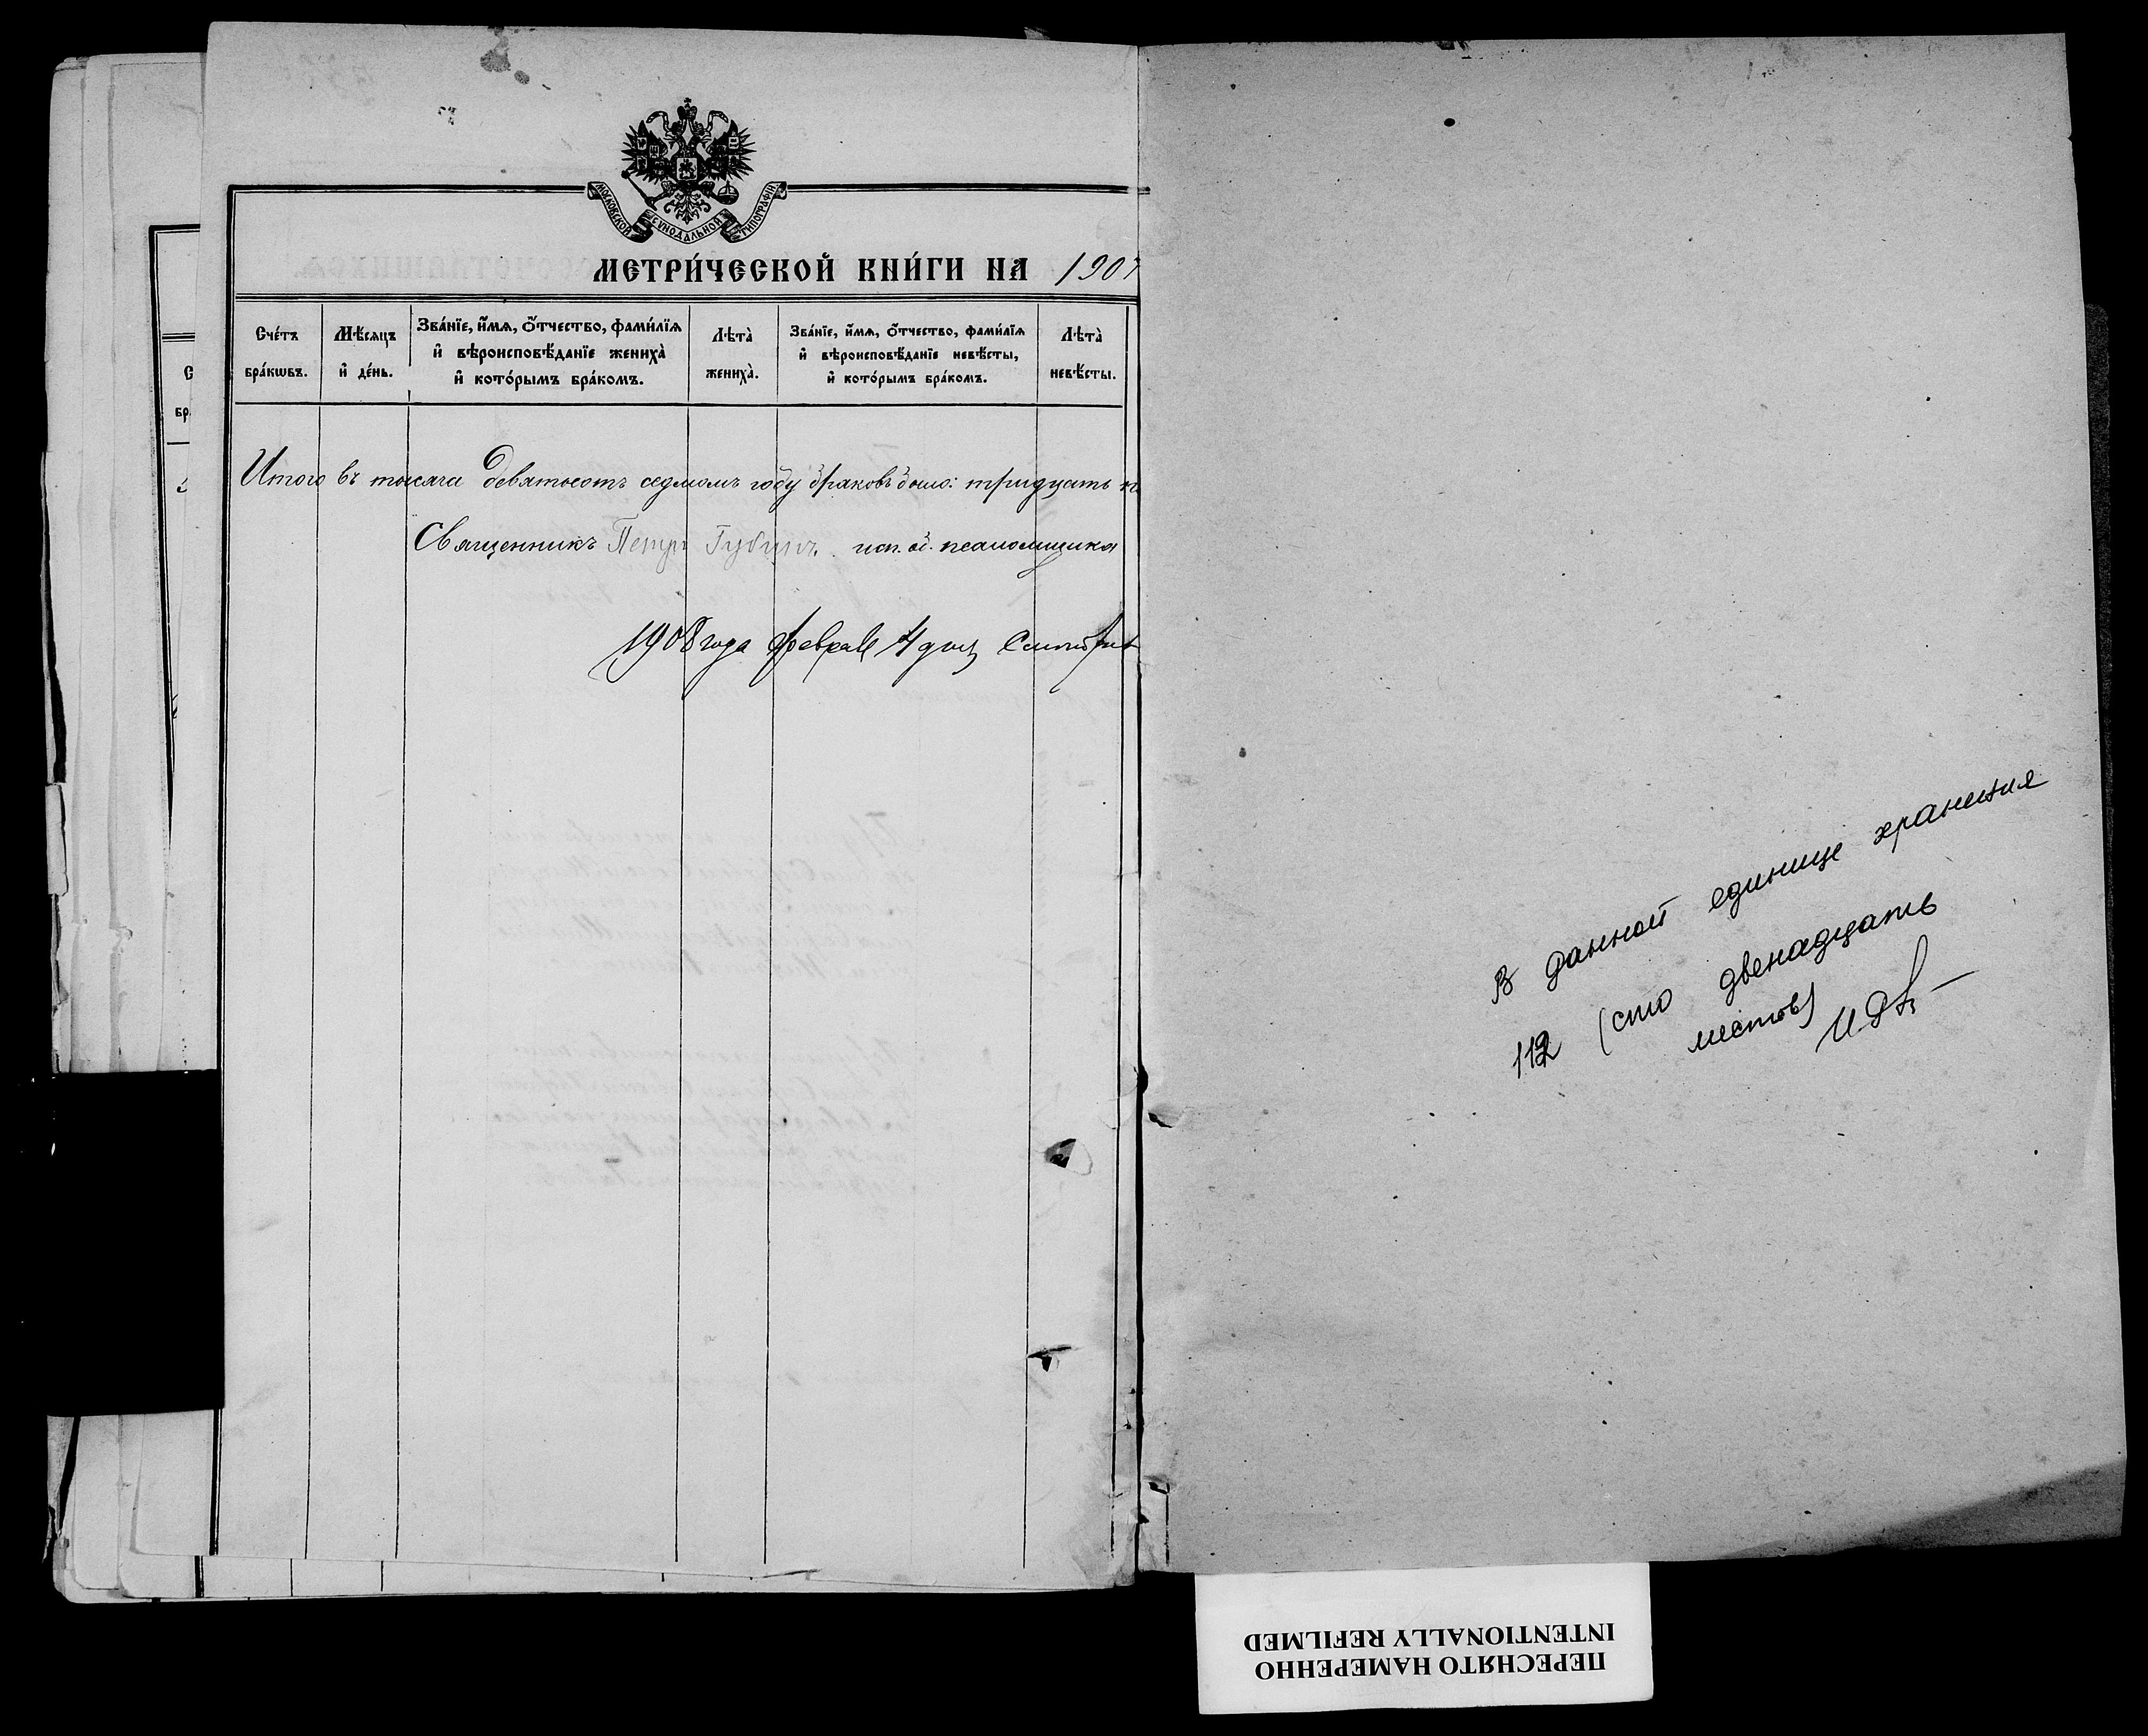 МОСКОВСКОЙ СѴНОДАЛЬНОЙ ТИПОГРАФІИ
МЕТРИ́ЧЕСКОЙ КНИ́ГИ НА 1907
Сче́тъ бра́кѡвъ.
Мѣ́сяцъ и҆ де́нь.
Зва́нїе, и҆́мѧ, ѻ҆́тчество, фами́лїѧ
и҆ вѣроисповѣ́данїе жениха̀
и҆ кото́рымъ бра́комъ.
Лѣта̀ жениха̀.
Зва́нїе, и҆́мѧ, ѻ҆́тчество, фами́лїѧ
и҆ вѣроисповѣ́данїе невѣ́сты,
и҆ кото́рымъ бра́комъ.
Лѣта̀ невѣ́сты.
Итого въ тысяча девятьсотъ седмомъ году браковъ было: тридцать
Священникъ Петръ Губинъ. исп. об. псаломщика
1908 года февраля 4 дня
В данной единице хранения
112 (сто двенадцать
листов)
ПЕРЕСНЯТО НАМЕРЕННО
INTENTIONALLY REFILMED